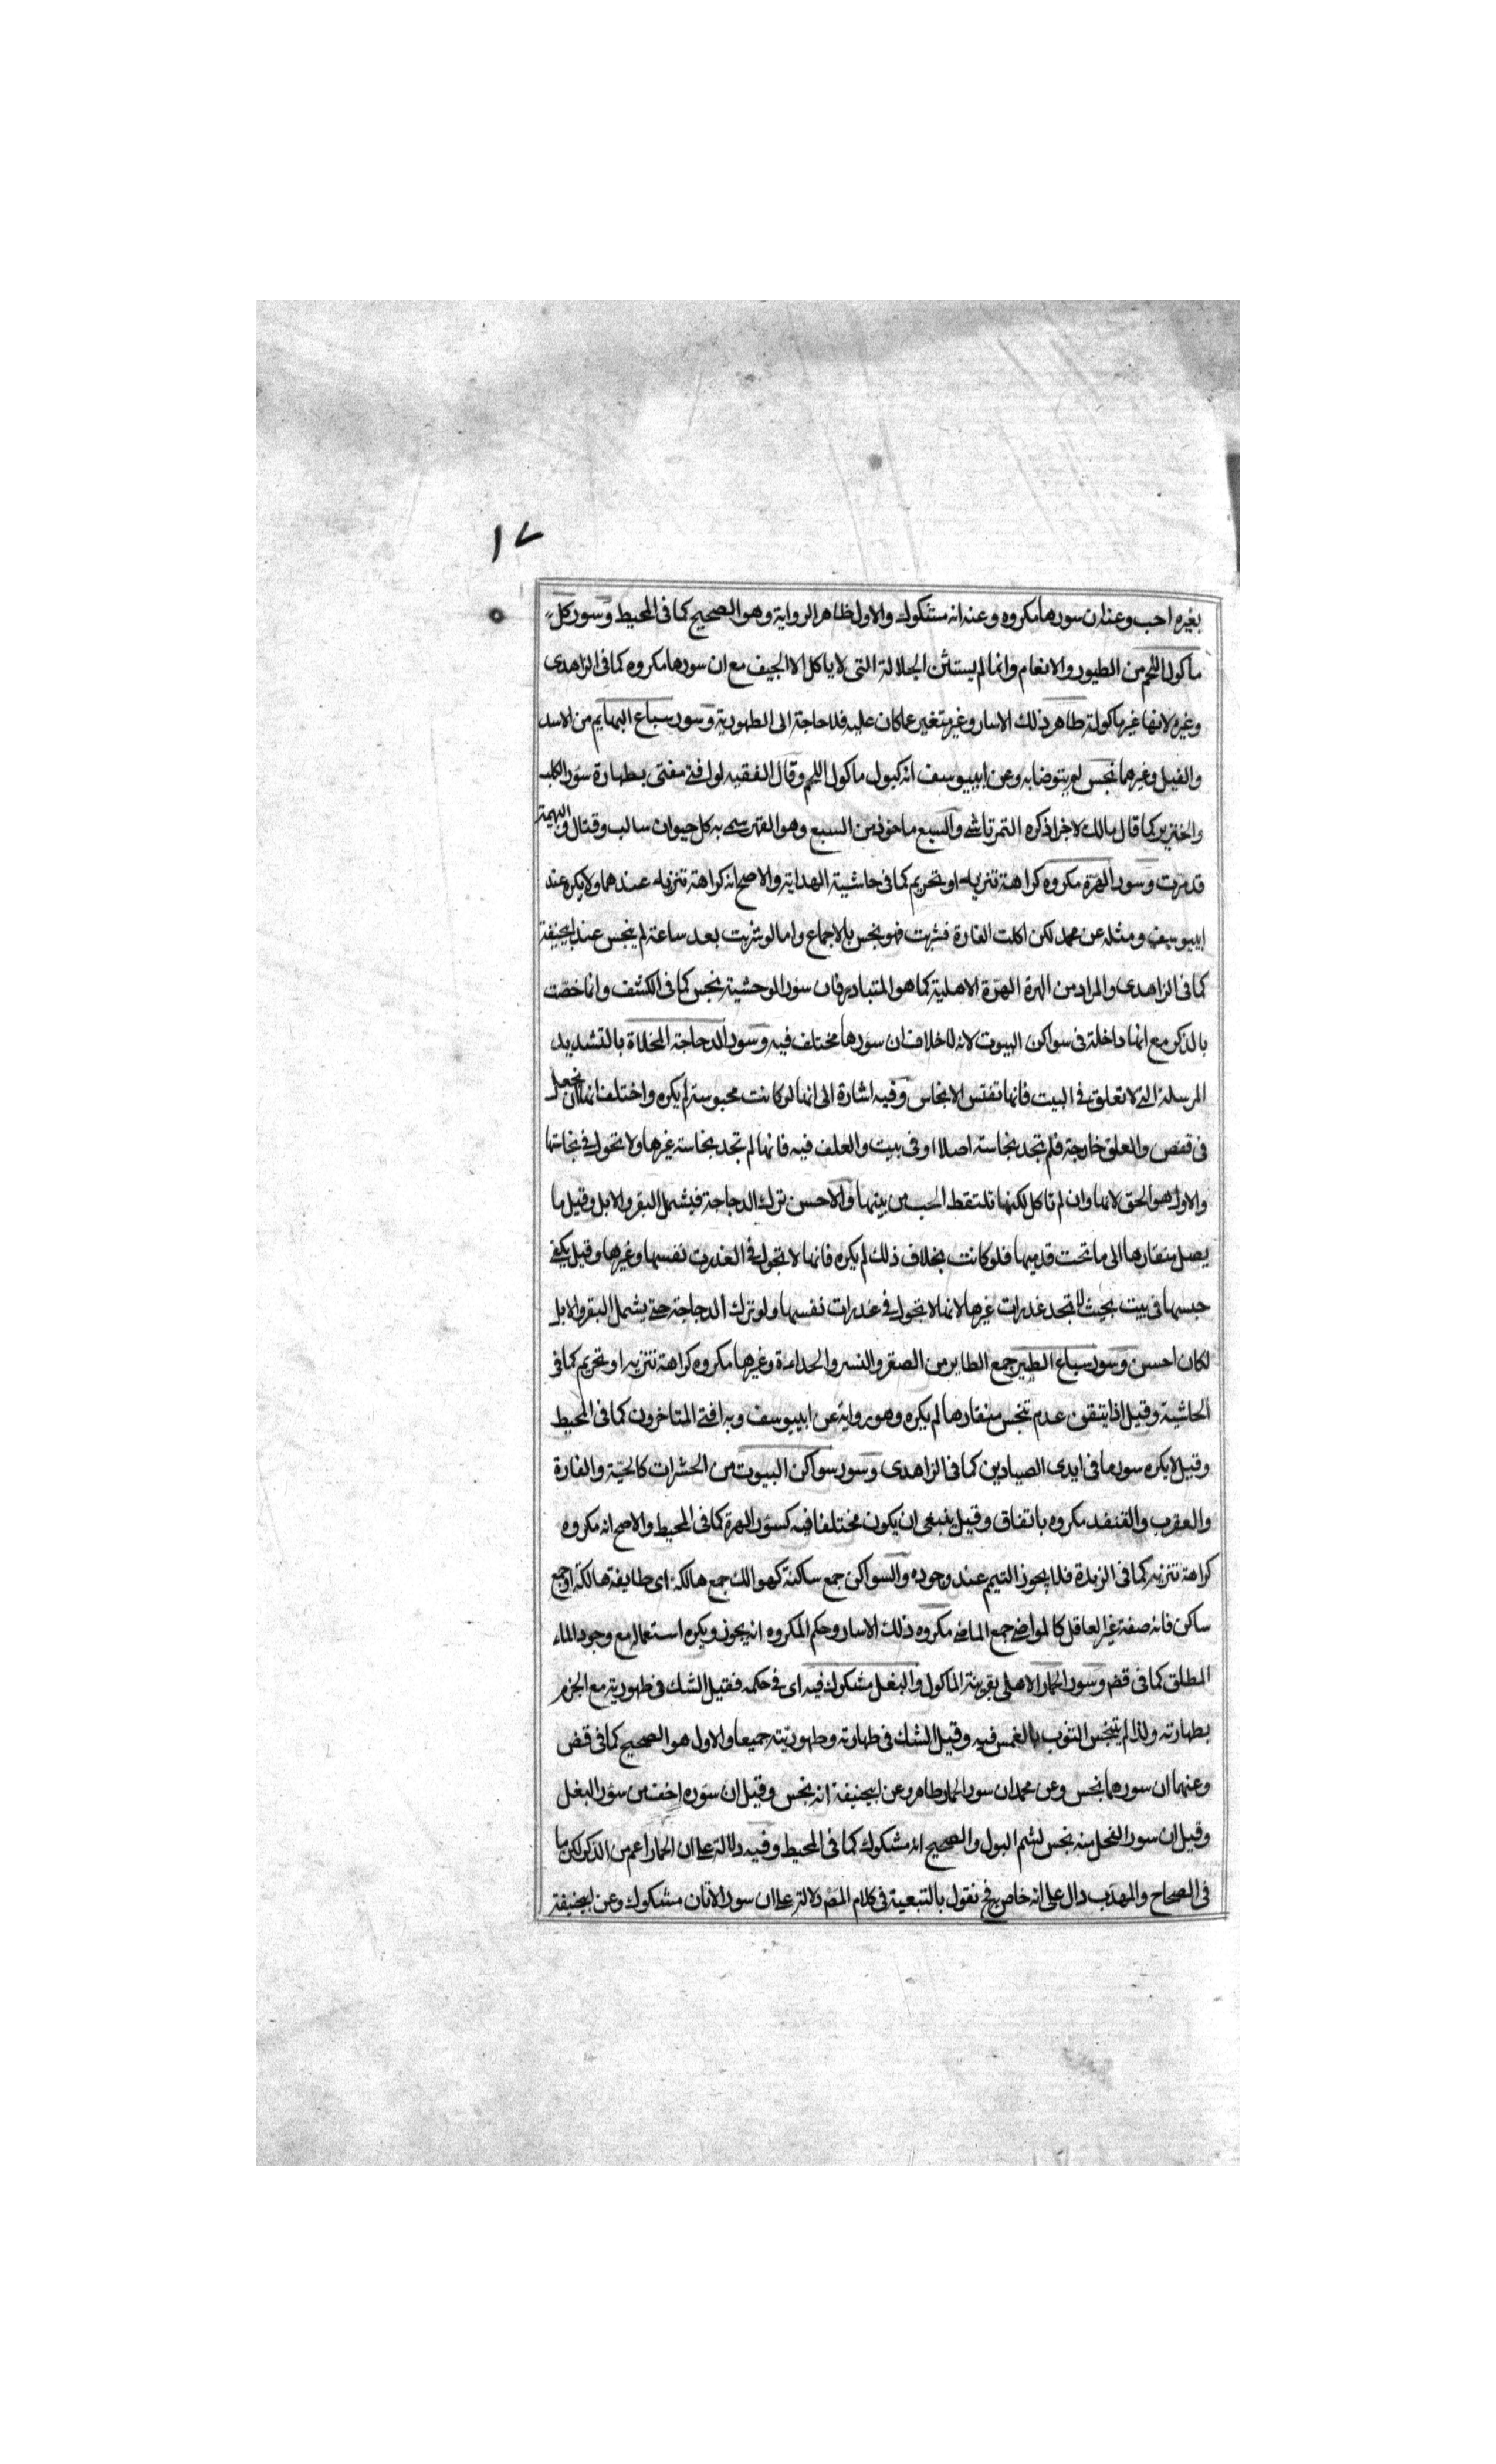 ١٧
بغيره احب وعنه ان سورها مكروه وعنه انه مشكوك والاول ظاهر الرواية وهو الصحيح كما فى المحيط وسور كل
ماكول اللحم من الطيور والانعام وانما لم يستثن الجلالة التى لا ياكل الا الجيف مع ان سورها مكروه كما فى الزاهدى
وغيره لانها غير ماكولة طاهر ذلك الاسار وغير متغير عما كان عليه فلا حاجة الى الطهورية وسور سباع البهايم من الاسد
والفيل وغيرهما نجس لم يتوضا به وعن ابييوسف انه كبول ماكول اللحم وقال الفقيه لو افتى مفتى بطهارة سور الكلب
والخنزير كما قال مالك لاجزا ذكره التمرتاشى والسبع ماخوذ من السبع وهو القهر سمى به كل حيوان سالب وقتال فى البهيمة
قد مرت وسور الهرة مكروه كراهة تنزيه او تحريم كما فى حاشية الهداية والاصح انه كراهة تنزيه عندهما ولا يكره عند
ابييوسف ومثله عن محمد لكن اكلت الفارة فشربت فهو نجس بالاجماع واما لو شربت بعد ساعة لم ينجس عند ابيحنيفة
كما فى الزاهدى والمراد من الهرة الهرة الاهلية كما هو المتبادر فان سور الوحشية نجس كما فى الكشف وانما خصت
بالذكر مع انها داخلة فى سواكن البيوت لانه لا خلاف ان سورها مختلف فيه وسور الدجاجة المخلاة بالتشديد
المرسلة التى لا تعلق فى البيت فانها تفتش الانجاس وفيه اشارة الى انها لو كانت محبوسة لم يكره واختلف انها ان يجعل
فى قفص والعلق خارجة فلم تجد نجاسة اصلا او فى بيت والعلف فيه فانها لم تجد نجاسة غيرها ولا تحول فى نجاستها
والاول هو الحق لانها وان لم تاكل لكنها تلتقط الحب من بينها والاحسن ترك الدجاجة فيشمل البقر والابل وقيل ما
يصل منقارها الى ما تحت قدميها فلو كانت بخلاف ذلك لم يكره فانها لا تجول فى العذرات نفسها وغيرها وقيل يكفى
حبسها فى بيت بحيث لا تجد عذرات غيرها لانها لا تجول فى عذرات نفسها ولو ترك الدجاجة حتى يشمل البقر والابل
لكان احسن وسور سباع الطير جمع الطاير من الصقر والنسر والحداءة وغيرها مكروه كراهة تنزيه او تحريم كما فى
الحاشية وقيل اذا يتقن عدم تنجس منقارها لم يكره وهو رواية عن ابييوسف وبه افتى المتاخرون كما فى المحيط
وقيل لا يكره سور ما فى ايدى الصيادين كما فى الزاهدى وسور سواكن البيوت من الحشرات كالحية والفارة
والعقرب والقنفد مكروه باتفاق وقيل ينبغى ان يكون مختلفا فيه كسور الهرة كما فى المحيط والاصح انه مكروه
كراهة تنزيه كما فى الزبدة فلا يجوز التيمم عند وجوده والسواكن جمع ساكنة كهوالك جمع هالكة اى طايفة هالكة او جمع
ساكن فانه صفة غير العاقل كالمواضى جمع الماضى مكروه ذلك الاسار وحكم المكروه انه يجوز ويكره استعماله مع وجود الماء
المطلق كما فى قض وسور الحمار الاهلى بقرينة الماكول والبغل مشكوك فيه اى فى حكمه فقيل الشك فى طهوريته مع الجزم
بطهارته ولذا لم يتنجس الثوب بالغمس فيه وقيل الشك فى طهارته وطهوريته جميعا والاول هو الصحيح كما فى قض
وعنهما ان سورهما نجس وعن محمد ان سور الحمار طاهر وعن ابيحنيفة انه نجس وقيل ان سوره اخف من سور البغل
وقيل ان سور الفحل منه نجس لشم البول والصحيح انه مشكوك كما فى المحيط وفيه دلالة على ان الحمار اعم من الذكر لكن ما
فى الصحاح والمهذب دال على انه خاص به فح نقول بالتبعية فى كلام المص دلالة على ان سور الاتان مشكوك وعن ابيحنيفة